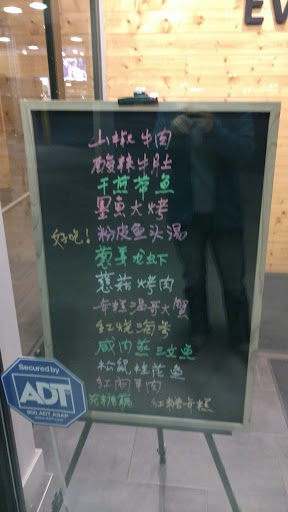 EV
山椒牛肉
酸辣牛肚
干煎带鱼
墨鱼大烤
好吃!
粉皮鱼头汤
葱姜龙虾
慈菇烤肉
年糕温哥大蟹
红烧海参
咸肉蒸三文鱼
松鼠桂花鱼
红闷羊肉
桂花糖藕
红糖年糕
Secured by
ADT
800.ADT.ASAP
www.ADT.com